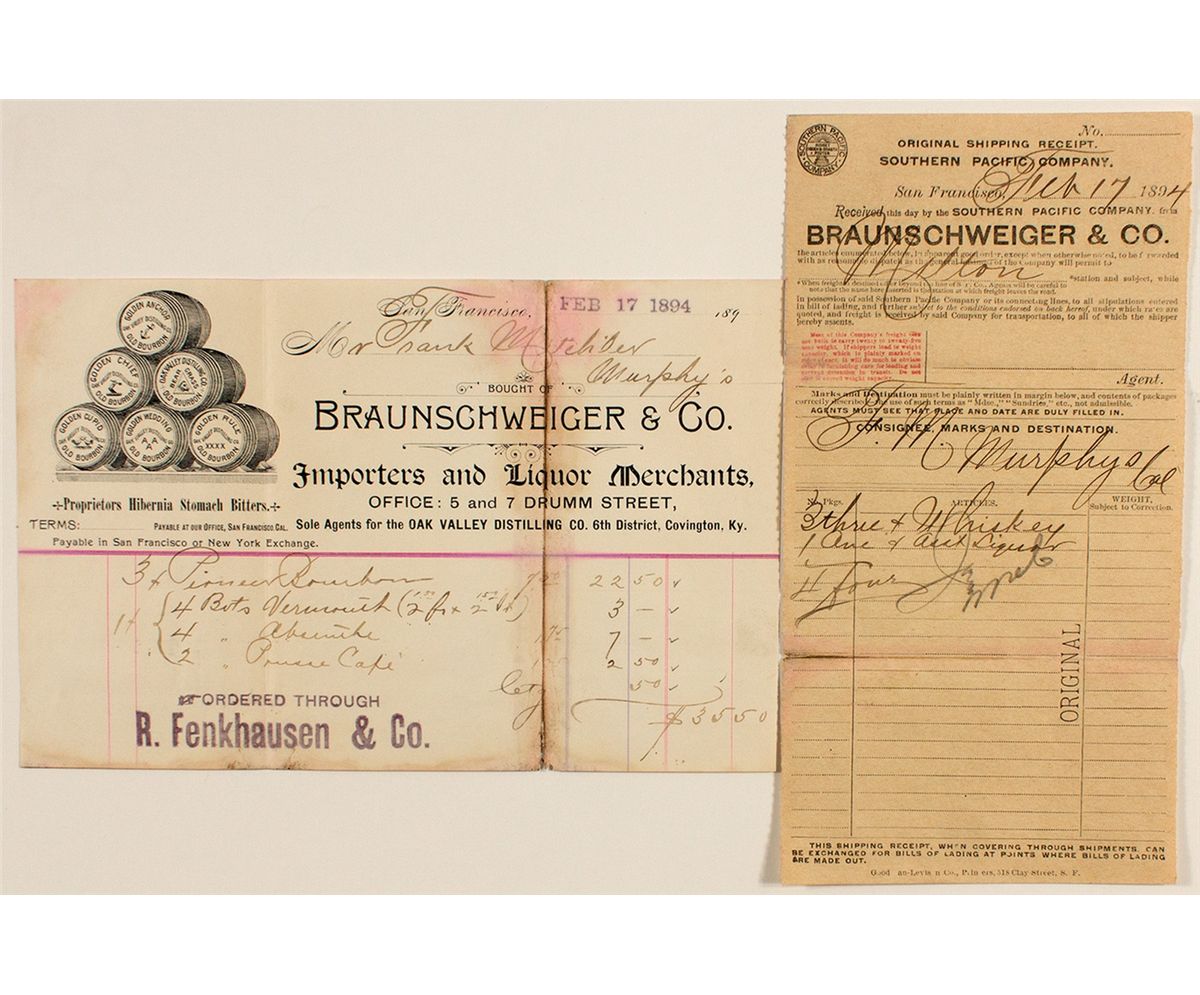 GOLDEN ANCHOR
OLD BOURBON
GOLDEN CHIEF
OLD BOURBON
OAK VALLEY DISTILLING CO.
BEAR GRASS
OLD BOURBON
GOLDEN CUPID
OLD BOURBON
GOLDEN WEDDING
AA
OLD BOURBON
GOLDEN RULE
XXXX
OLD BOURBON
÷Proprietors Hibernia Stomach Bitters.÷
TERMS: PAYABLE AT OUR OFFICE, SAN FRANCISCO, CAL.
Payable in San Francisco or New York Exchange.
San Francisco, FEB 17 1894 189
Mr Frank
Murphy's
BOUGHT OF
BRAUNSCHWEIGER & CO.
Importers and Liquor Merchants,
OFFICE: 5 and 7 DRUMM STREET,
Sole Agents for the OAK VALLEY DISTILLING CO. 6th District, Covington, Ky.
3 Pioneer Bourbon 7.50 22 50
4 Bots Vermouth 3 –
4 " Absinthe 1.75 7 –
2 " Pousse Café 2 50
50
$35 50
ORDERED THROUGH
R. Fenkhausen & Co.
SOUTHERN PACIFIC COMPANY
No.
ORIGINAL SHIPPING RECEIPT.
SOUTHERN PACIFIC COMPANY.
San Francisco, Feb 17 1894
Received this day by the SOUTHERN PACIFIC COMPANY, from
BRAUNSCHWEIGER & CO.
the articles enumerated below, in apparent good order, except when otherwise noted, to be forwarded
with as reasonable dispatch as the general business of the Company will permit to
Milton *station and subject, while
*When freight is destined after beyond the line of S. P. Co., Agents will be careful to
note that the name here inserted is the station at which freight leaves the road.
in possession of said Southern Pacific Company or its connecting lines, to all stipulations entered
in bill of lading, and further subject to the conditions endorsed on back hereof, under which rates are
quoted, and freight is received by said Company for transportation, to all of which the shipper
hereby assents.
Most of this Company's freight cars
are built to carry twenty to twenty-five
tons weight. If shippers load to weight
capacity, which is plainly marked on
Agent.
Marks and Destination must be plainly written in margin below, and contents of packages
correctly described. The use of such terms as "Mdse.," "Sundries," etc., not admissible.
AGENTS MUST SEE THAT PLACE AND DATE ARE DULY FILLED IN.
CONSIGNEE, MARKS AND DESTINATION.
F. M
Murphys Cal
No. Pkgs. ARTICLES. WEIGHT,
Subject to Correction.
3 three Whiskey
1 One Liquor
4 four
ORIGINAL
THIS SHIPPING RECEIPT, WHEN COVERING THROUGH SHIPMENTS, CAN
BE EXCHANGED FOR BILLS OF LADING AT POINTS WHERE BILLS OF LADING
ARE MADE OUT.
Co., Printers, 518 Clay Street, S. F.